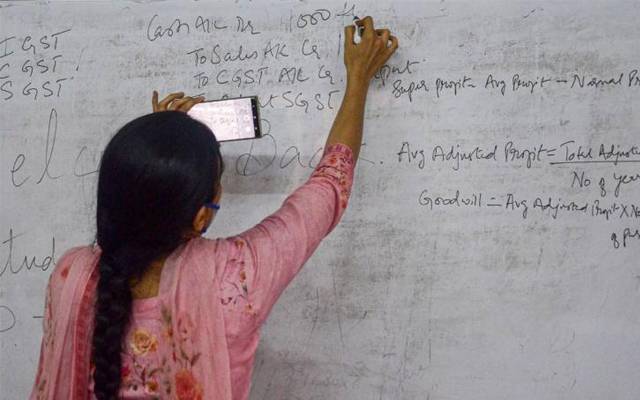 IGST
CGST
SGST
Cash A/c Dr 11000
To Sales A/c Cr
To CGST A/c Cr
SGST
Super Profit = Avg Profit - Normal Pr
Avg Adjusted Profit = Total Adjuste
No of year
Goodwill = Avg Adjusted Profit X No
of pur
Welc Back.
Stud